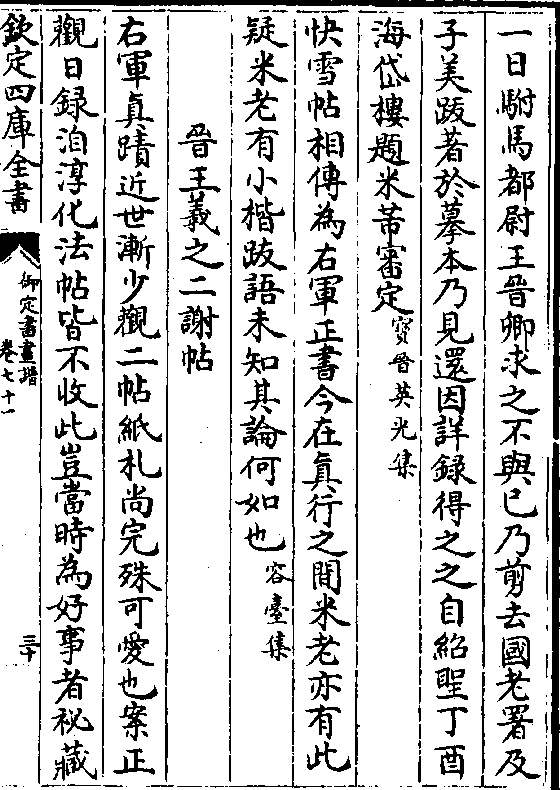 一日駙馬都尉王晉卿求之不與已乃剪去國老署及
子美跋著於摹本乃見還因詳録得之之自紹聖丁酉
海岱樓題米芾審定寶晉英光集
快雪帖相傳為右軍正書今在真行之間米老亦有此
疑米老有小楷跋語未知其論何如也容臺集
晉王羲之二謝帖
右軍真蹟近世漸少觀二帖紙札尚完殊可愛也案正
觀日録洎淳化法帖皆不收此豈當時為好事者秘藏
欽定四庫全書
御定書畫譜
卷七十一
三十